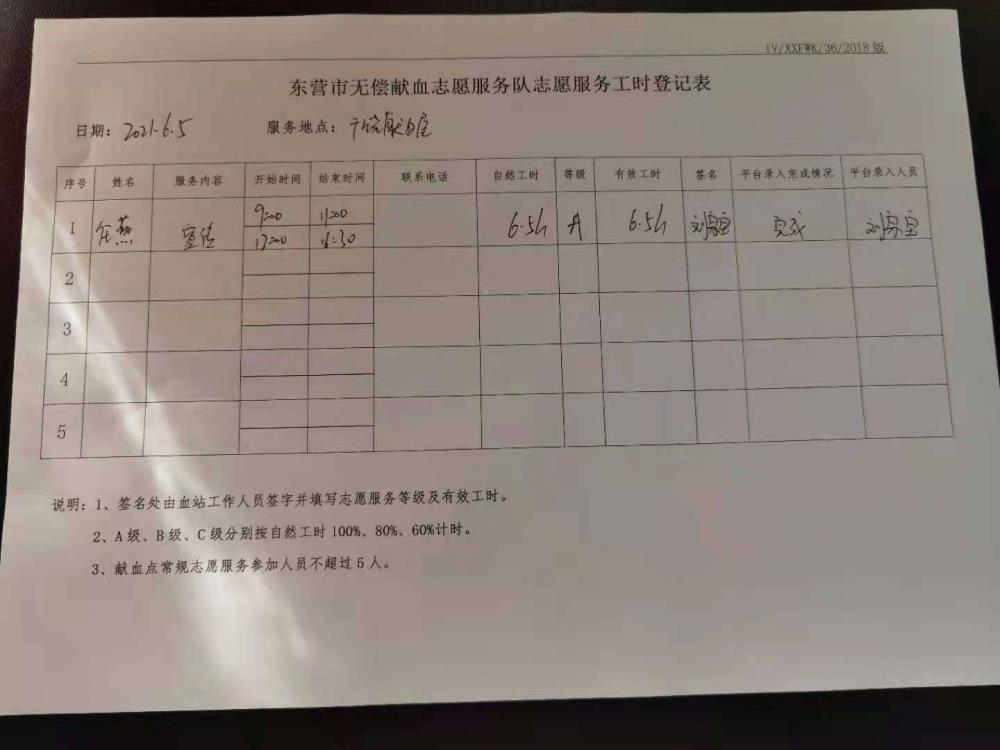 IV/XXFWK/36/2018版
东营市无偿献血志愿服务队志愿服务工时登记表
日期：2021.6.5 服务地点：献血屋
序号 姓名 服务内容 开始时间 结束时间 联系电话 自然工时 等级 有效工时 签名 平台录入完成情况 平台录入人员
1 任燕 宣传 9:00 11:00 6.5h A 6.5h 完成
12:00 16:30
2
3
4
5
说明：1、签名处由血站工作人员签字并填写志愿服务等级及有效工时。
2、A级、B级、C级分别按自然工时100%、80%、60%计时。
3、献血点常规志愿服务参加人员不超过5人。